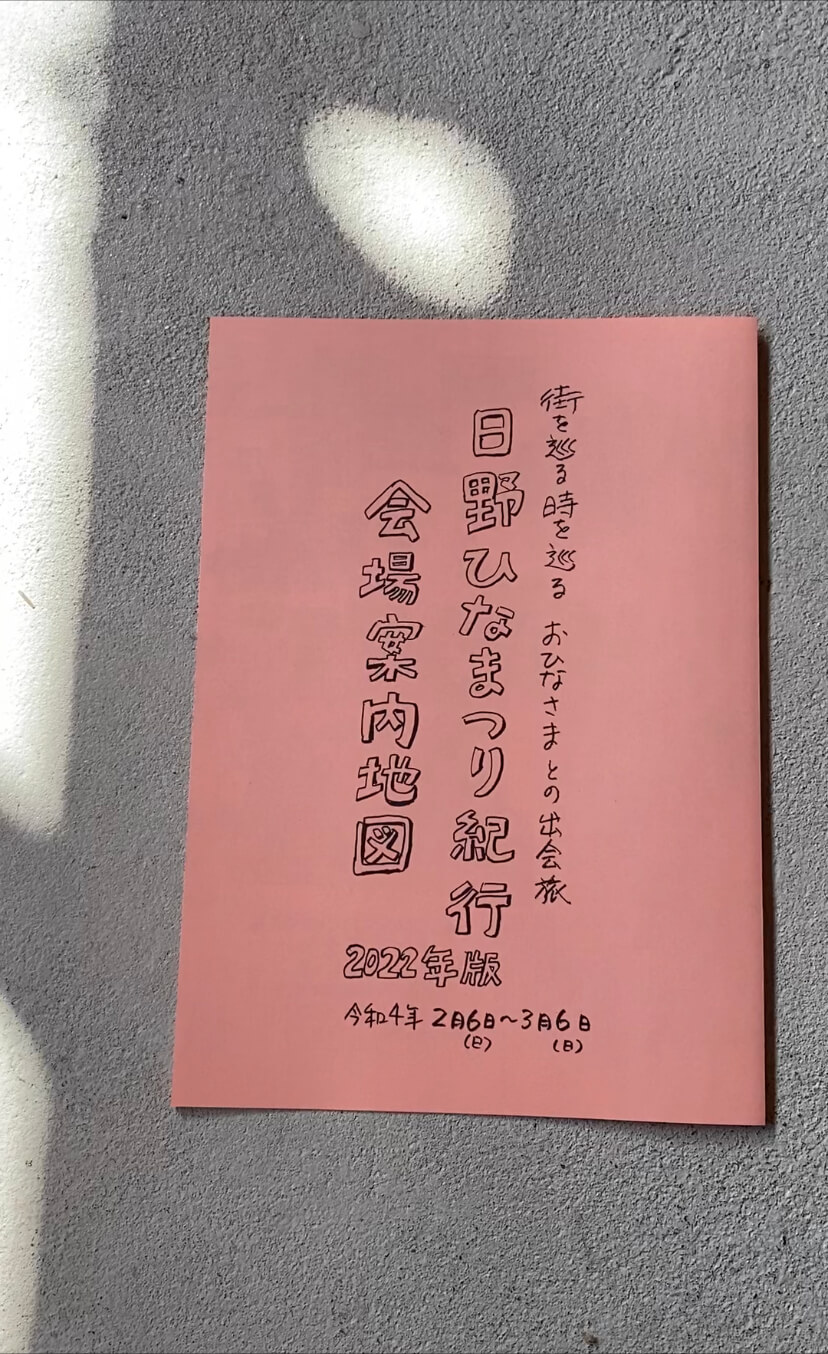 街を巡る 時を巡る おひなさまとの出会旅
日野ひなまつり紀行
会場案内地図
2022年版
令和4年 2月6日～3月6日
(日) (日)